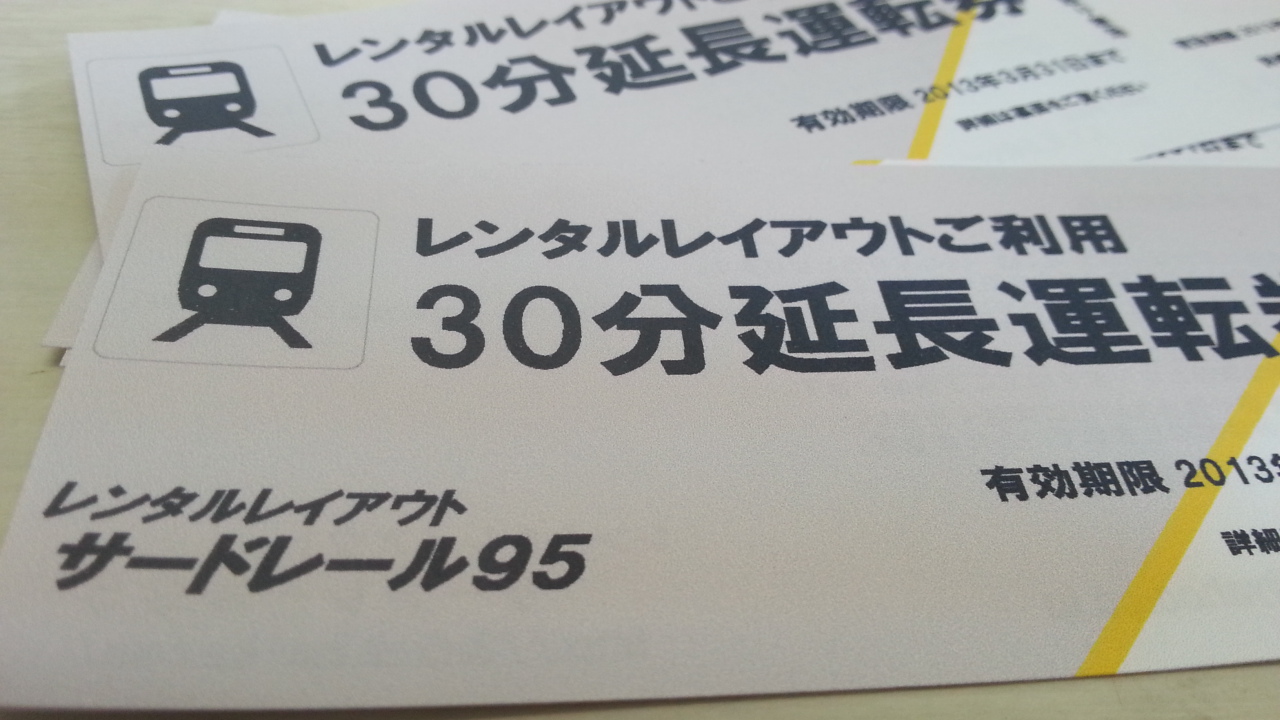 レンタルレイアウトご
30分延長運転券
有効期限 2013年3月31日まで
レンタルレイアウトご利用
30分延長運転
有効期限 2013年
詳細
レンタルレイアウト
サードレール95